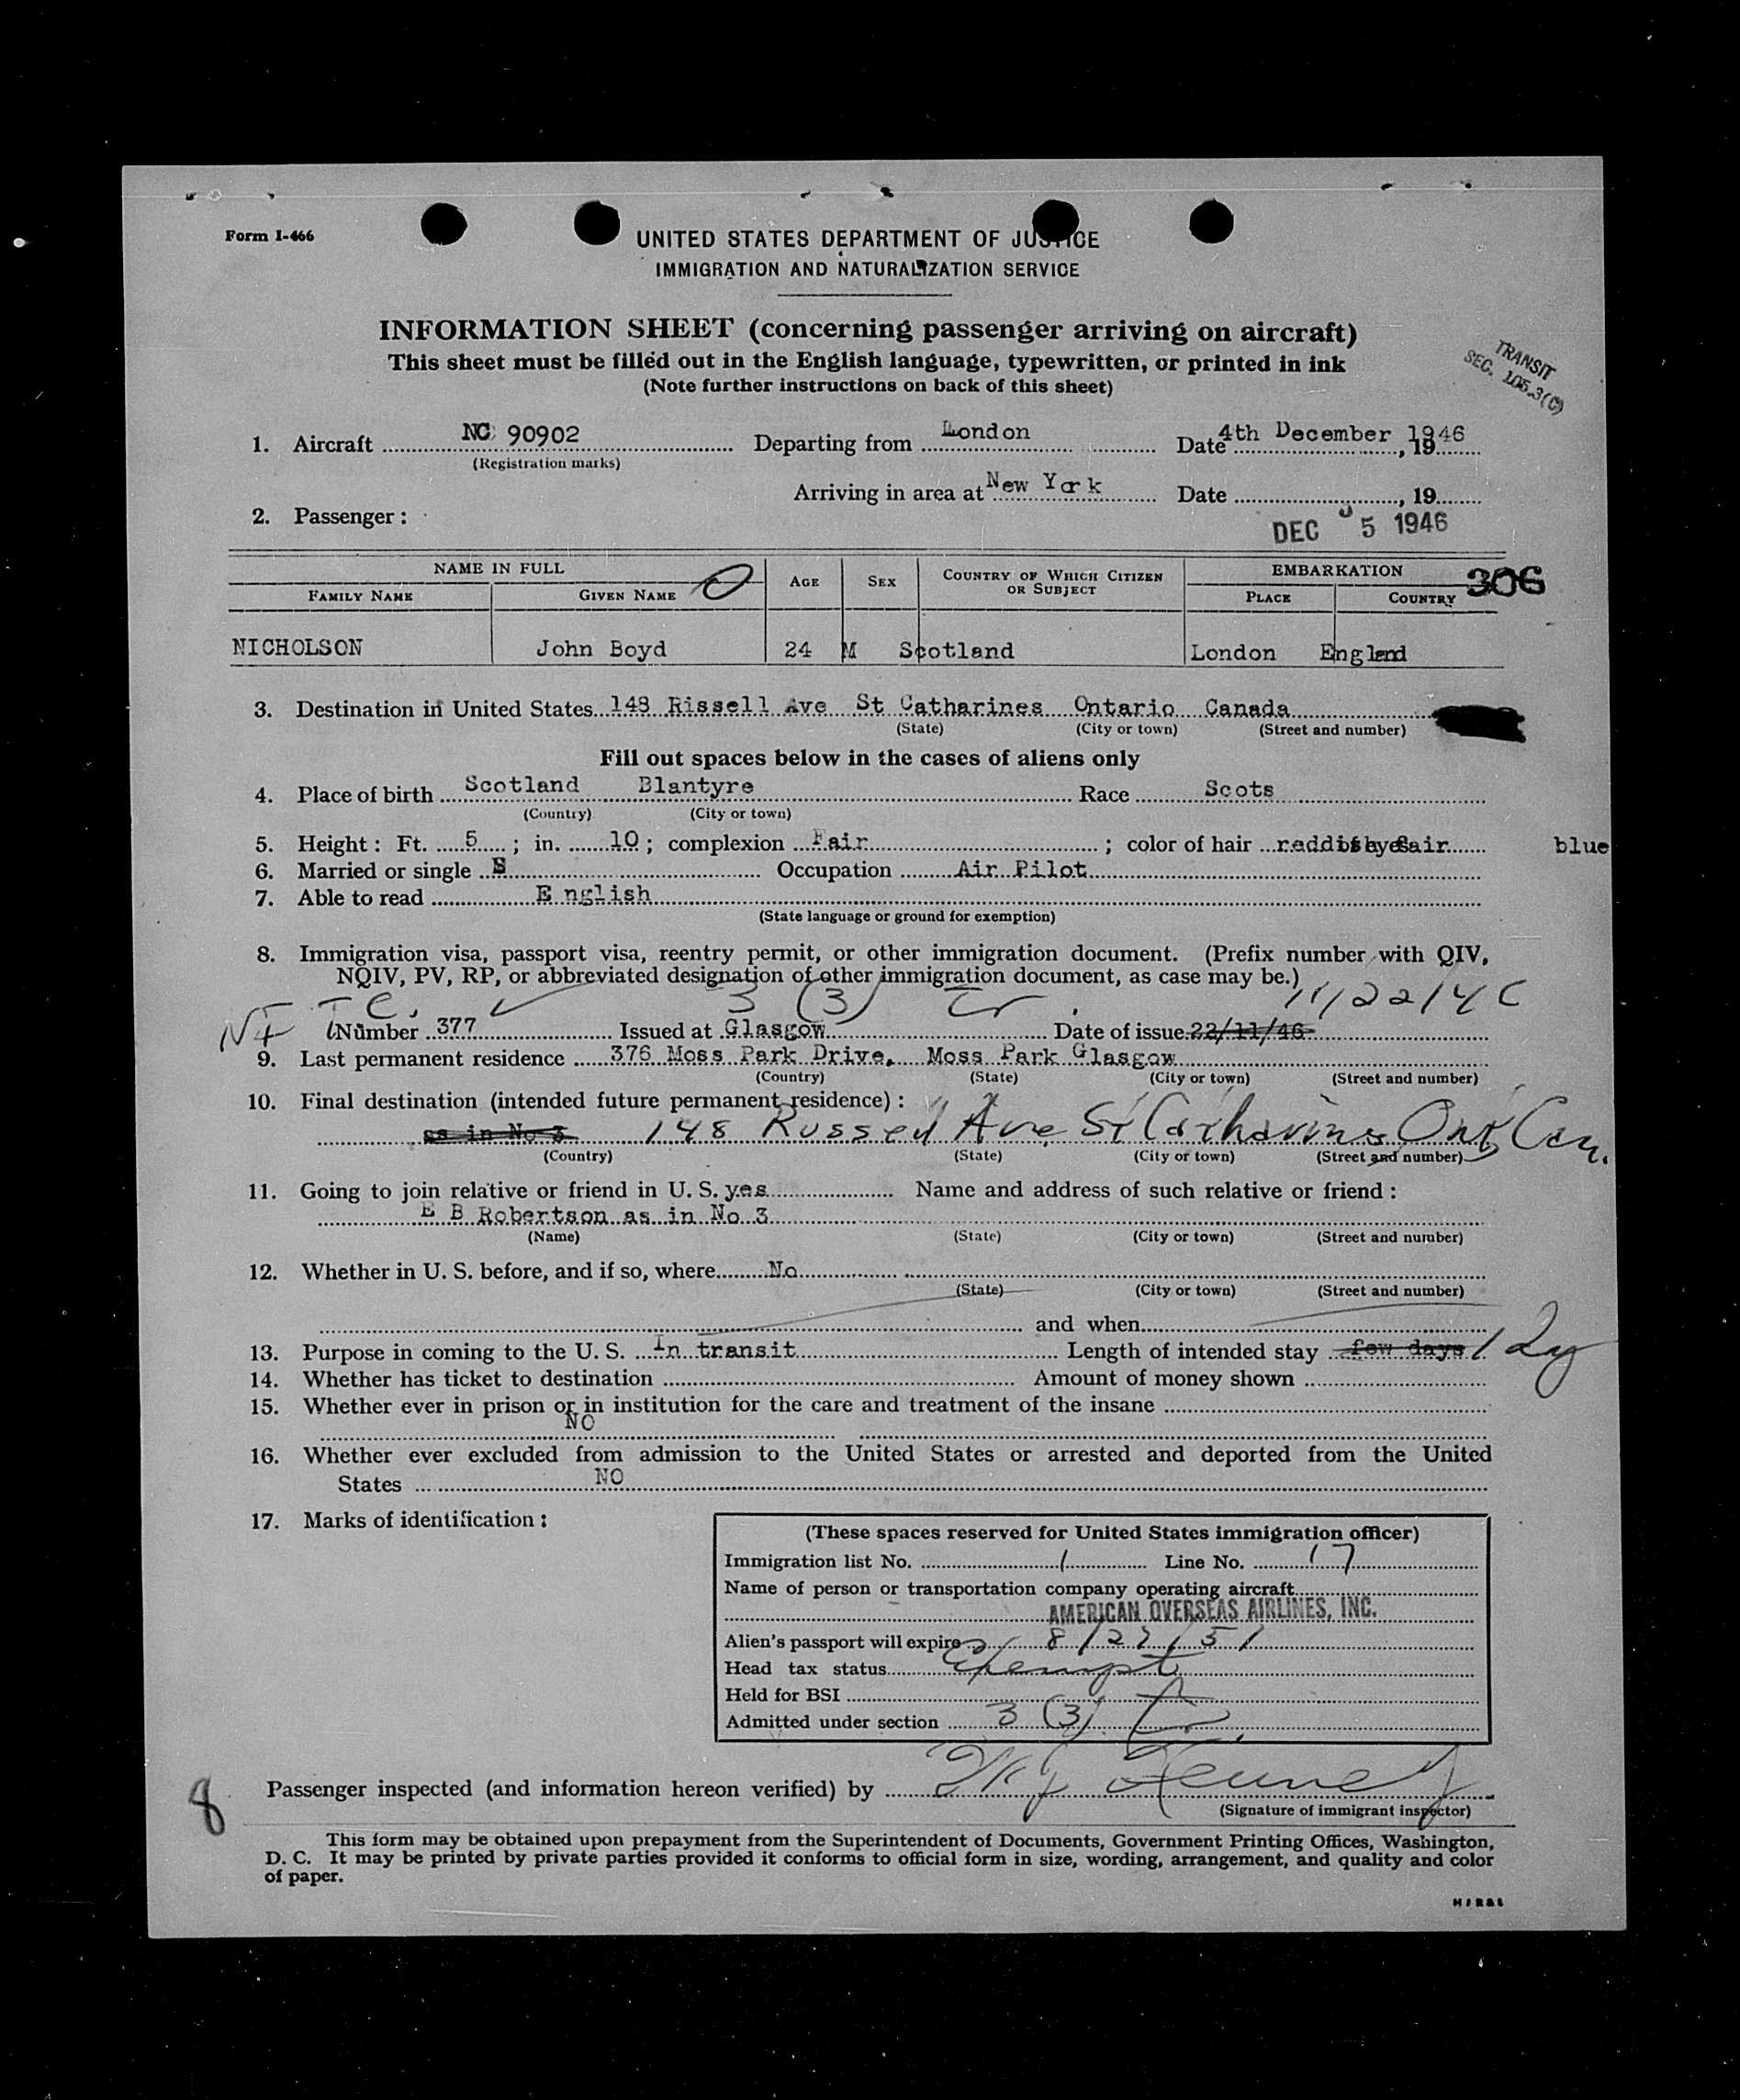 Form I-466
UNITED STATES DEPARTMENT OF JUSTICE
IMMIGRATION AND NATURALIZATION SERVICE
INFORMATION SHEET (concerning passenger arriving on aircraft)
This sheet must be filled out in the English language, typewritten, or printed in ink
(Note further instructions on back of this sheet)
TRANSIT
SEC. 105.3(C)
1. Aircraft NC 90902 Departing from London Date 4th December 1946, 19
(Registration marks)
Arriving in area at New York Date , 19
2. Passenger:
DEC 5 1946
NAME IN FULL
FAMILY NAME GIVEN NAME AGE SEX COUNTRY OF WHICH CITIZEN OR SUBJECT EMBARKATION PLACE COUNTRY 306
NICHOLSON John Boyd 24 M Scotland London England
3. Destination in United States 148 Rissell Ave St Catharines Ontario Canada
(State) (City or town) (Street and number)
Fill out spaces below in the cases of aliens only
4. Place of birth Scotland Blantyre Race Scots
(Country) (City or town)
5. Height: Ft. 5; in. 10; complexion Fair; color of hair reddish fair eyes blue
6. Married or single S Occupation Air Pilot
7. Able to read English
(State language or ground for exemption)
8. Immigration visa, passport visa, reentry permit, or other immigration document. (Prefix number with QIV,
NQIV, PV, RP, or abbreviated designation of other immigration document, as case may be.)
T C. 3 (3) Tr. 11/22/46
Number 377 Issued at Glasgow Date of issue 22/11/46
9. Last permanent residence 376 Moss Park Drive, Moss Park Glasgow
(Country) (State) (City or town) (Street and number)
10. Final destination (intended future permanent residence):
as in No 3 148 Russell Ave St Catharines Ont Can.
(Country) (State) (City or town) (Street and number)
11. Going to join relative or friend in U. S. yes Name and address of such relative or friend:
E B Robertson as in No 3
(Name) (State) (City or town) (Street and number)
12. Whether in U. S. before, and if so, where No
(State) (City or town) (Street and number)
and when
13. Purpose in coming to the U. S. In transit Length of intended stay few days 1 Dy
14. Whether has ticket to destination Amount of money shown
15. Whether ever in prison or in institution for the care and treatment of the insane
NO
16. Whether ever excluded from admission to the United States or arrested and deported from the United
States NO
17. Marks of identification:
(These spaces reserved for United States immigration officer)
Immigration list No. 1 Line No. 17
Name of person or transportation company operating aircraft
AMERICAN OVERSEAS AIRLINES, INC.
Alien's passport will expire 8/22/51
Head tax status Exempt
Held for BSI
Admitted under section 3 (3) Tr.
8 Passenger inspected (and information hereon verified) by
(Signature of immigrant inspector)
This form may be obtained upon prepayment from the Superintendent of Documents, Government Printing Offices, Washington,
D. C. It may be printed by private parties provided it conforms to official form in size, wording, arrangement, and quality and color
of paper.